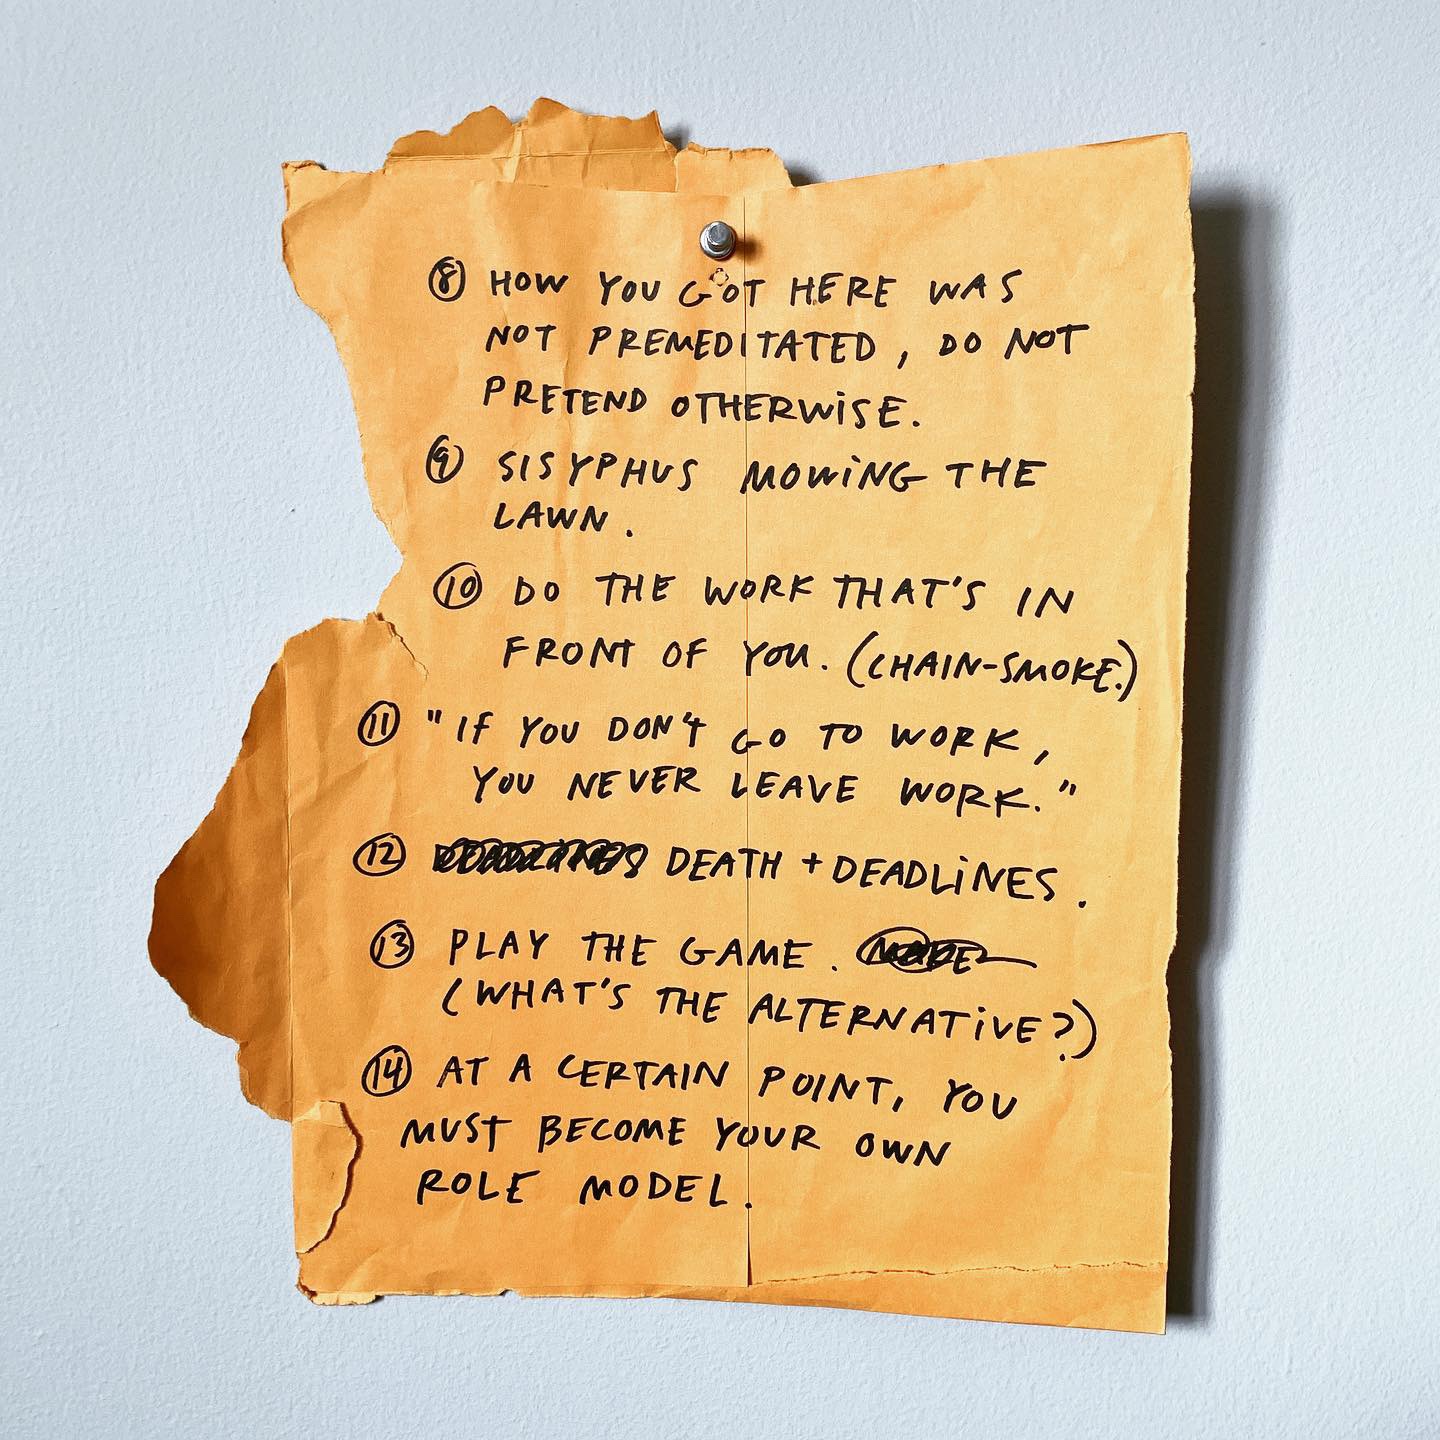 ⑧ HOW YOU GOT HERE WAS
NOT PREMEDITATED, DO NOT
PRETEND OTHERWISE.
⑨ SISYPHUS MOWING THE
LAWN.
⑩ DO THE WORK THAT'S IN
FRONT OF YOU. (CHAIN-SMOKE.)
⑪ "IF YOU DON'T GO TO WORK,
YOU NEVER LEAVE WORK."
⑫ DEATH + DEADLINES.
⑬ PLAY THE GAME.
(WHAT'S THE ALTERNATIVE?)
⑭ AT A CERTAIN POINT, YOU
MUST BECOME YOUR OWN
ROLE MODEL.